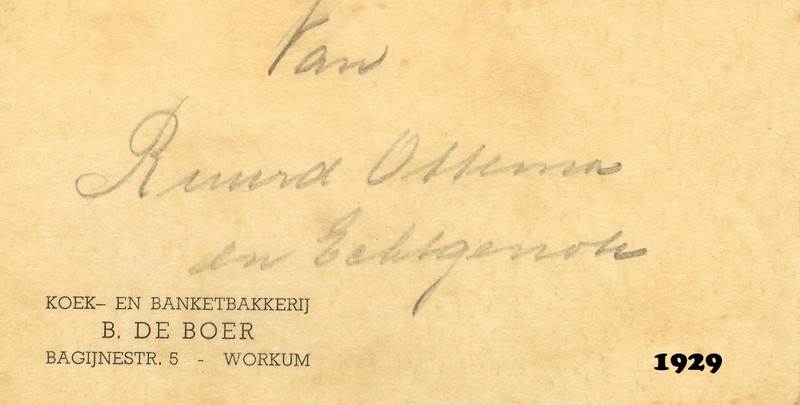 Van
Ruurd Ottema
en Echtgenote
KOEK– EN BANKETBAKKERIJ
B. DE BOER
BAGIJNESTR. 5 - WORKUM
1929